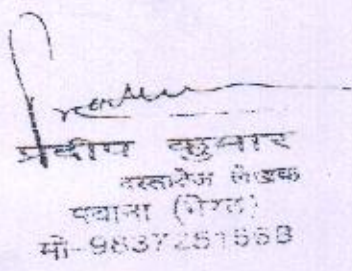 प्रदीप कुमार
दस्तावेज लेखक
मवाना (मेरठ)
मो-9837251568